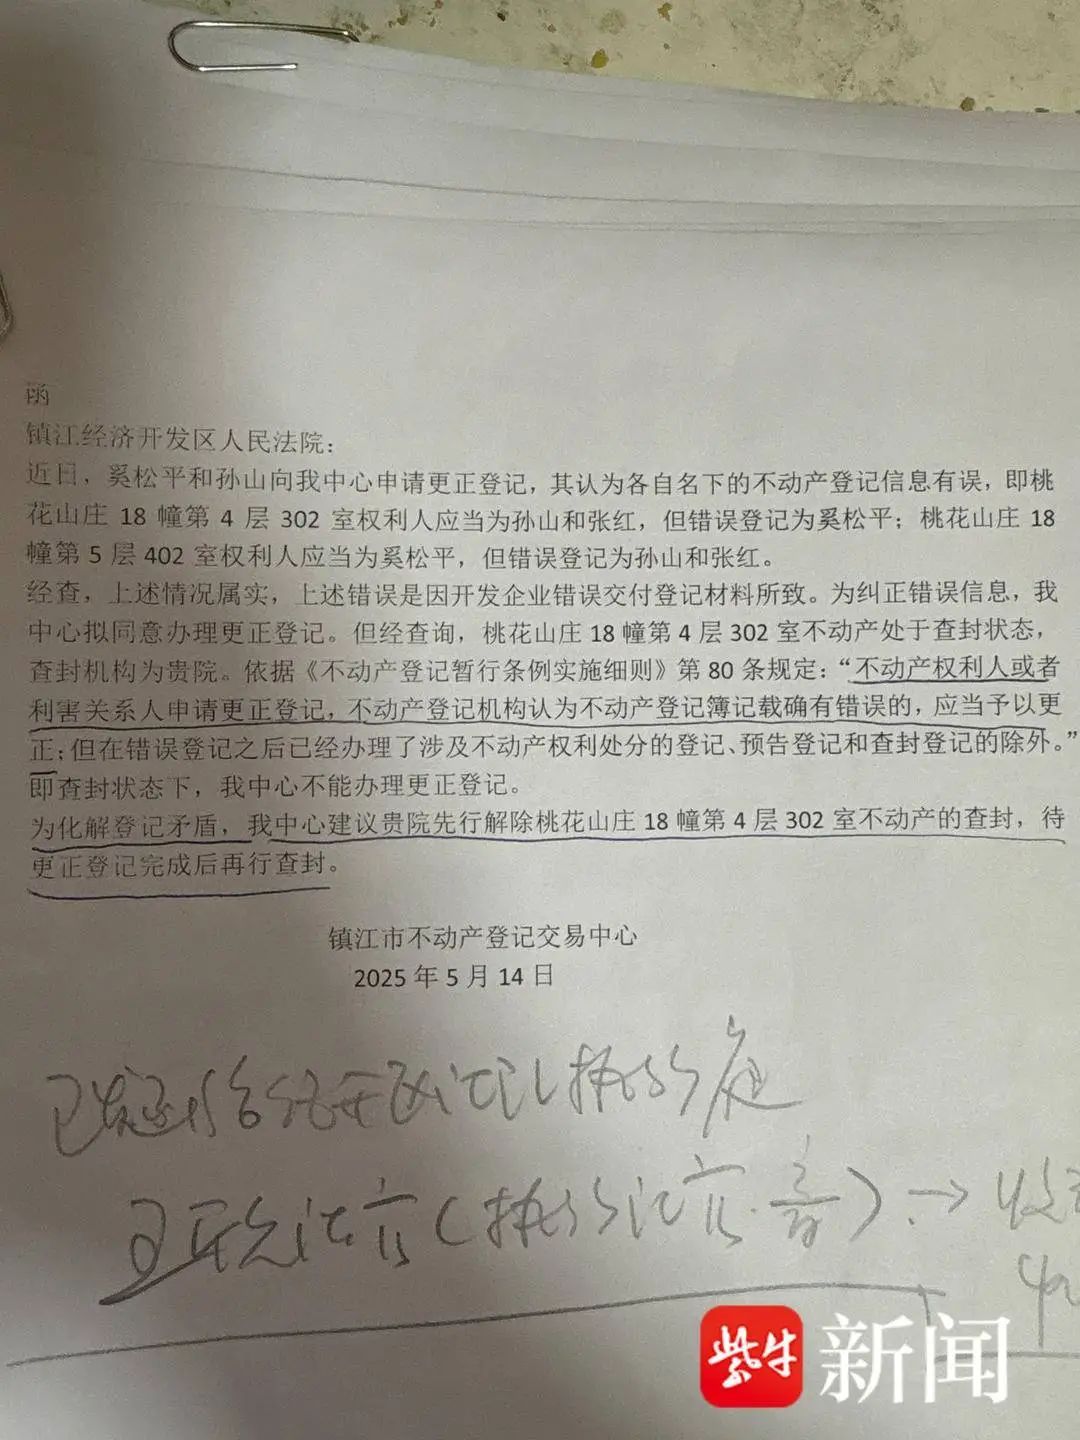 函
镇江经济开发区人民法院：
近日，奚松平和孙山向我中心申请更正登记，其认为各自名下的不动产登记信息有误，即桃
花山庄 18 幢第 4 层 302 室权利人应当为孙山和张红，但错误登记为奚松平；桃花山庄 18
幢第 5 层 402 室权利人应当为奚松平，但错误登记为孙山和张红。
经查，上述情况属实，上述错误是因开发企业错误交付登记材料所致。为纠正错误信息，我
中心拟同意办理更正登记。但经查询，桃花山庄 18 幢第 4 层 302 室不动产处于查封状态，
查封机构为贵院。依据《不动产登记暂行条例实施细则》第 80 条规定：“不动产权利人或者
利害关系人申请更正登记，不动产登记机构认为不动产登记簿记载确有错误的，应当予以更
正；但在错误登记之后已经办理了涉及不动产权利处分的登记、预告登记和查封登记的除外。”
即查封状态下，我中心不能办理更正登记。
为化解登记矛盾，我中心建议贵院先行解除桃花山庄 18 幢第 4 层 302 室不动产的查封，待
更正登记完成后再行查封。
镇江市不动产登记交易中心
2025 年 5 月 14 日
执行庭
法官
紫牛新闻